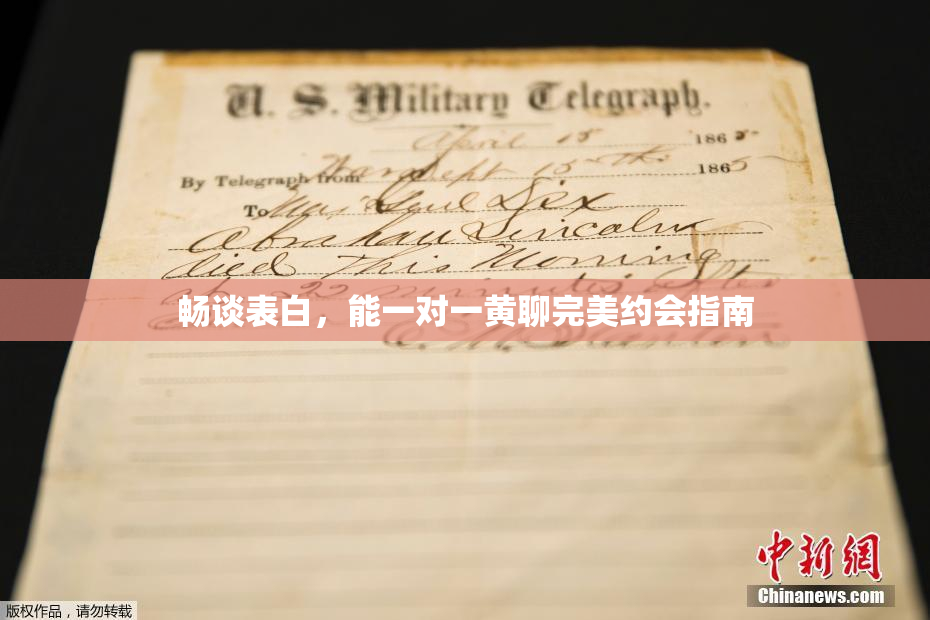 U. S. Military Telegraph.
April 15 1865
By Telegraph from War Dept 15th 1865
To Maj Genl Dix
Abraham Lincoln
died This Morning
at 22 minutes after
畅谈表白，能一对一黄聊完美约会指南
E. M. Stanton
中新网
Chinanews.com
版权作品，请勿转载